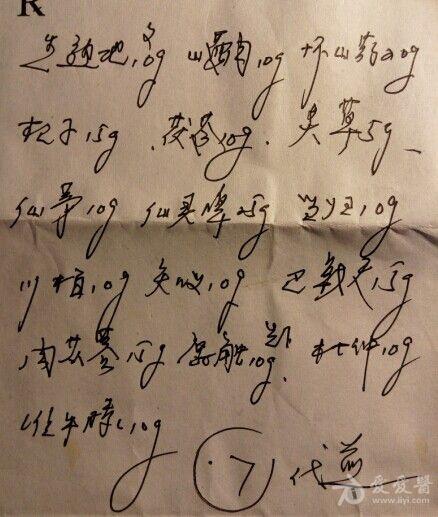 R
生熟地各10g 山萸肉10g 怀山药20g
杞子15g 茯苓10g 炙草5g
仙茅10g 仙灵脾25g 当归10g
川柏10g 知母10g 巴戟天15g
肉苁蓉15g 鹿角10g 杜仲10g
怀牛膝10g
7 代煎
爱爱医
www.iiyi.com